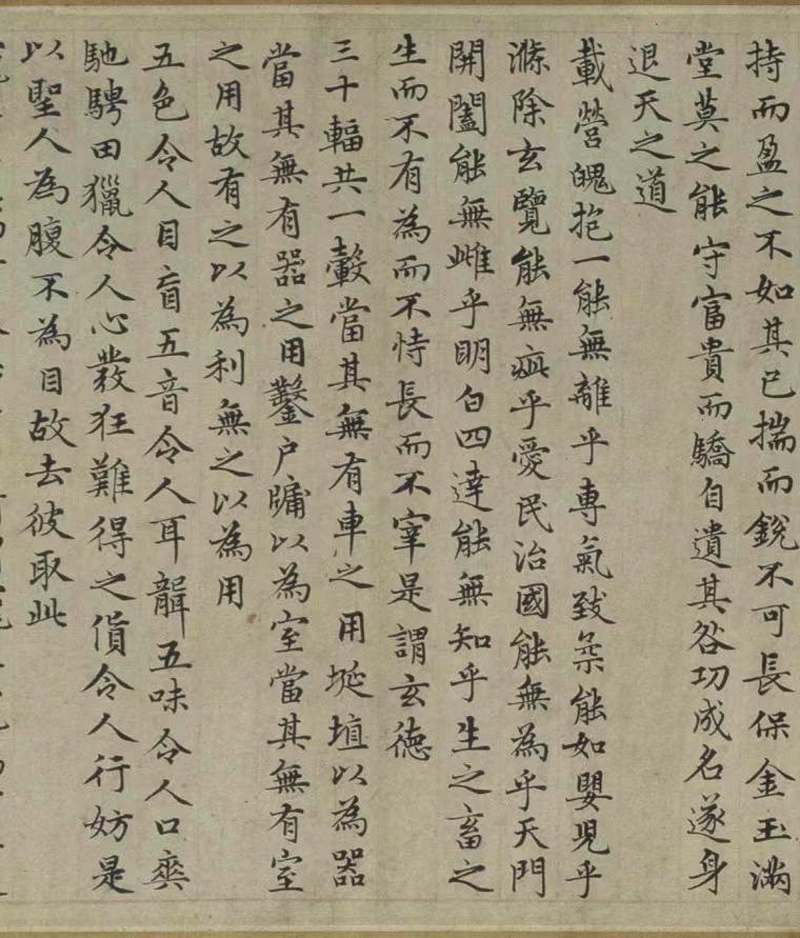 持而盈之不如其已揣而銳不可長保金玉滿
堂莫之能守富貴而驕自遺其咎功成名遂身
退天之道
載營魄抱一能無離乎專氣致柔能如嬰児乎
滌除玄覽能無疵乎愛民治國能無為乎天門
開闔能無雌乎明白四達能無知乎生之畜之
生而不有為而不恃長而不宰是謂玄德
三十輻共一轂當其無有車之用埏埴以為器
當其無有器之用鑿户牖以為室當其無有室
之用故有之以為利無之以為用
五色令人目盲五音令人耳聾五味令人口爽
馳騁田獵令人心發狂難得之貨令人行妨是
以聖人為腹不為目故去彼取此